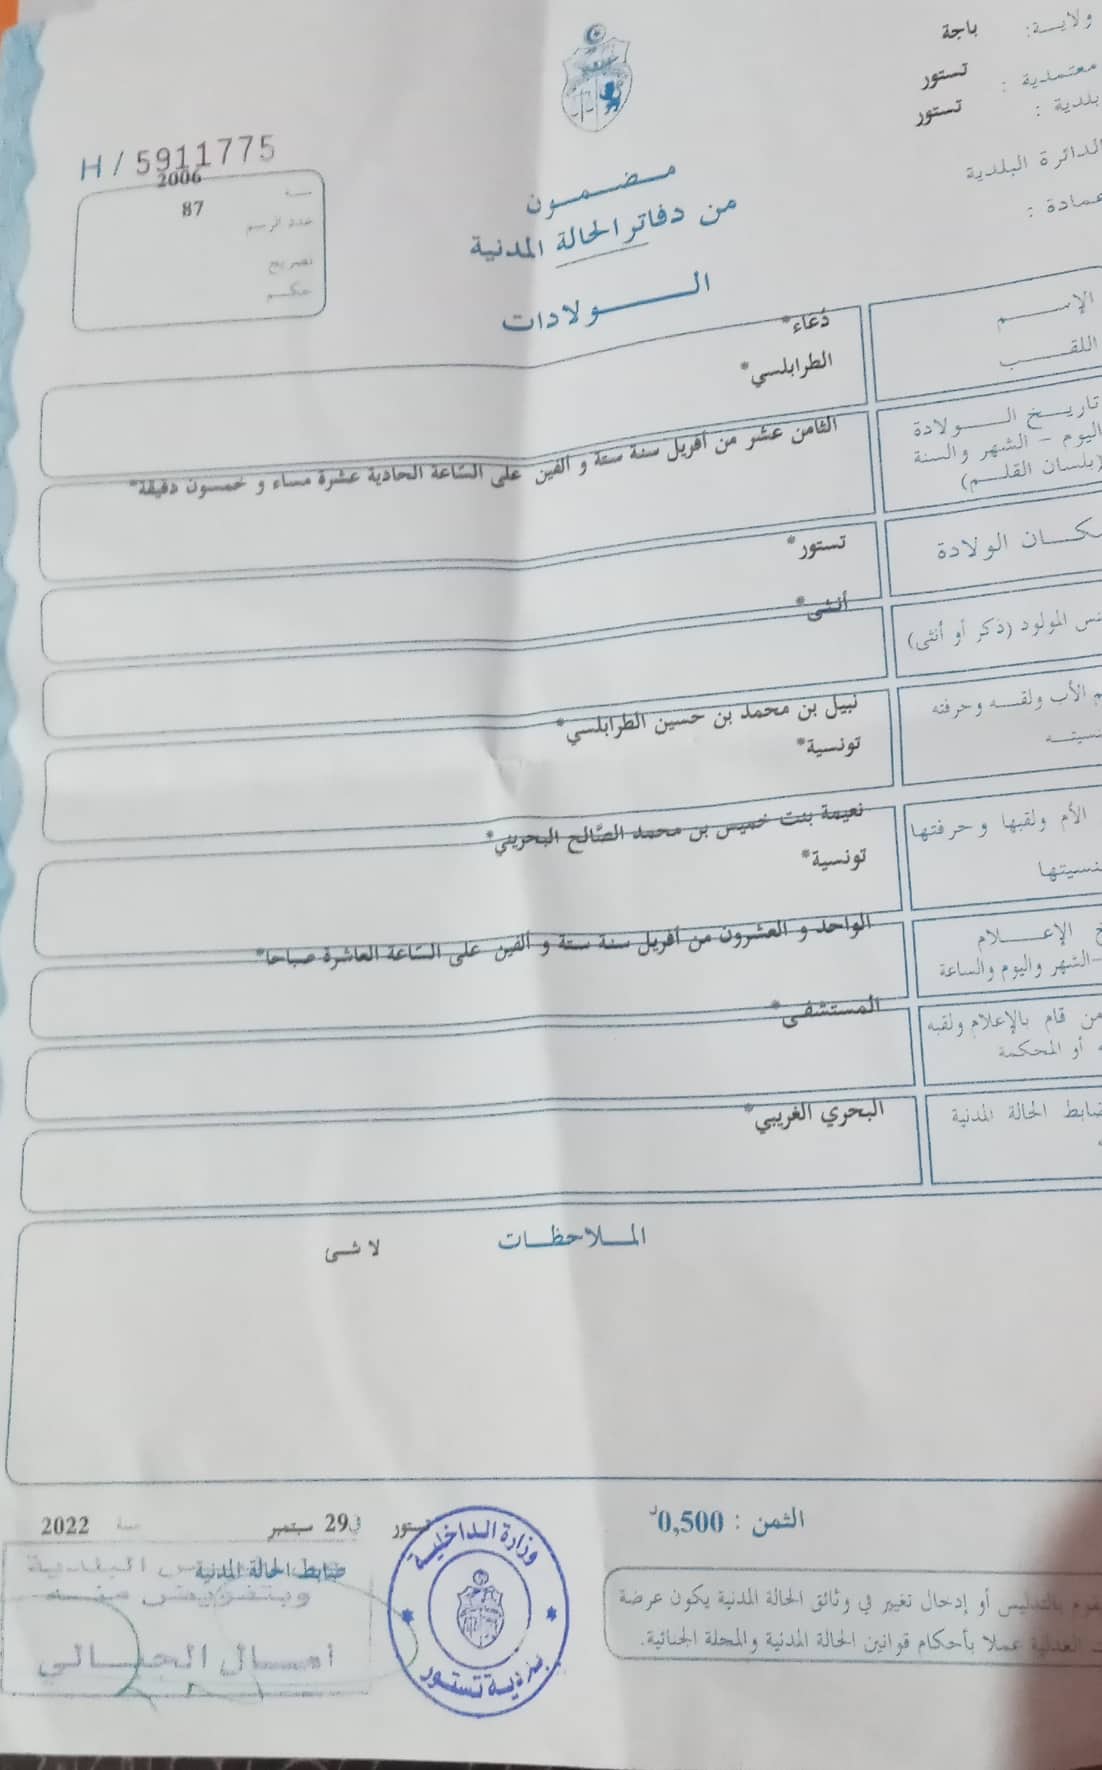 ولايـــة: باجة
معتمدية : تستور
بلدية : تستور
الدائرة البلدية
عمادة :
H / 5911775
سنة 2006
عدد الرسم 87
تصريح
حكـــم
مـــضـــمـــون
من دفاتر الحالة المدنية
الـــــولادات
الإســـــم دُعاء*
اللقـــــب الطرابلسي*
تاريـــخ الـــــولادة
اليوم – الشهر والسنة
(بلسان القلـــم)
الثامن عشر من أفريل سنة ستة و ألفين على السّاعة الحادية عشرة مساء و خمسون دقيقة*
مكـــان الولادة تستور*
جنس المولود (ذكر أو أنثى) أنثى*
الأب ولقبـــه وحرفته نبيل بن محمد بن حسين الطرابلسي*
تونسية*
الأم ولقبها وحرفتها نعيمة بنت خميس بن محمد الصّالح البحريني*
تونسية*
الإعـــــلام
–الشهر واليوم والساعة
الواحد و العشرون من أفريل سنة ستة و ألفين على السّاعة العاشرة صباحا*
من قام بالإعلام ولقبه المستشفى*
أو المحكمة
ضابط الحالة المدنية البحري الغريبي*
المـــلاحظـــات
لا شى
الثمن : 0,500د
تستور في 29 سبتمبر سنة 2022
ضابط الحالة المدنية
وبتفويض منه
آمـــال الجبـــالي
وزارة الداخلية
بلدية تستور
بالتدليس أو إدخال تغيير في وثائق الحالة المدنية يكون عرضة
العدلية عملا بأحكام قوانين الحالة المدنية والمجلة الجنائية.